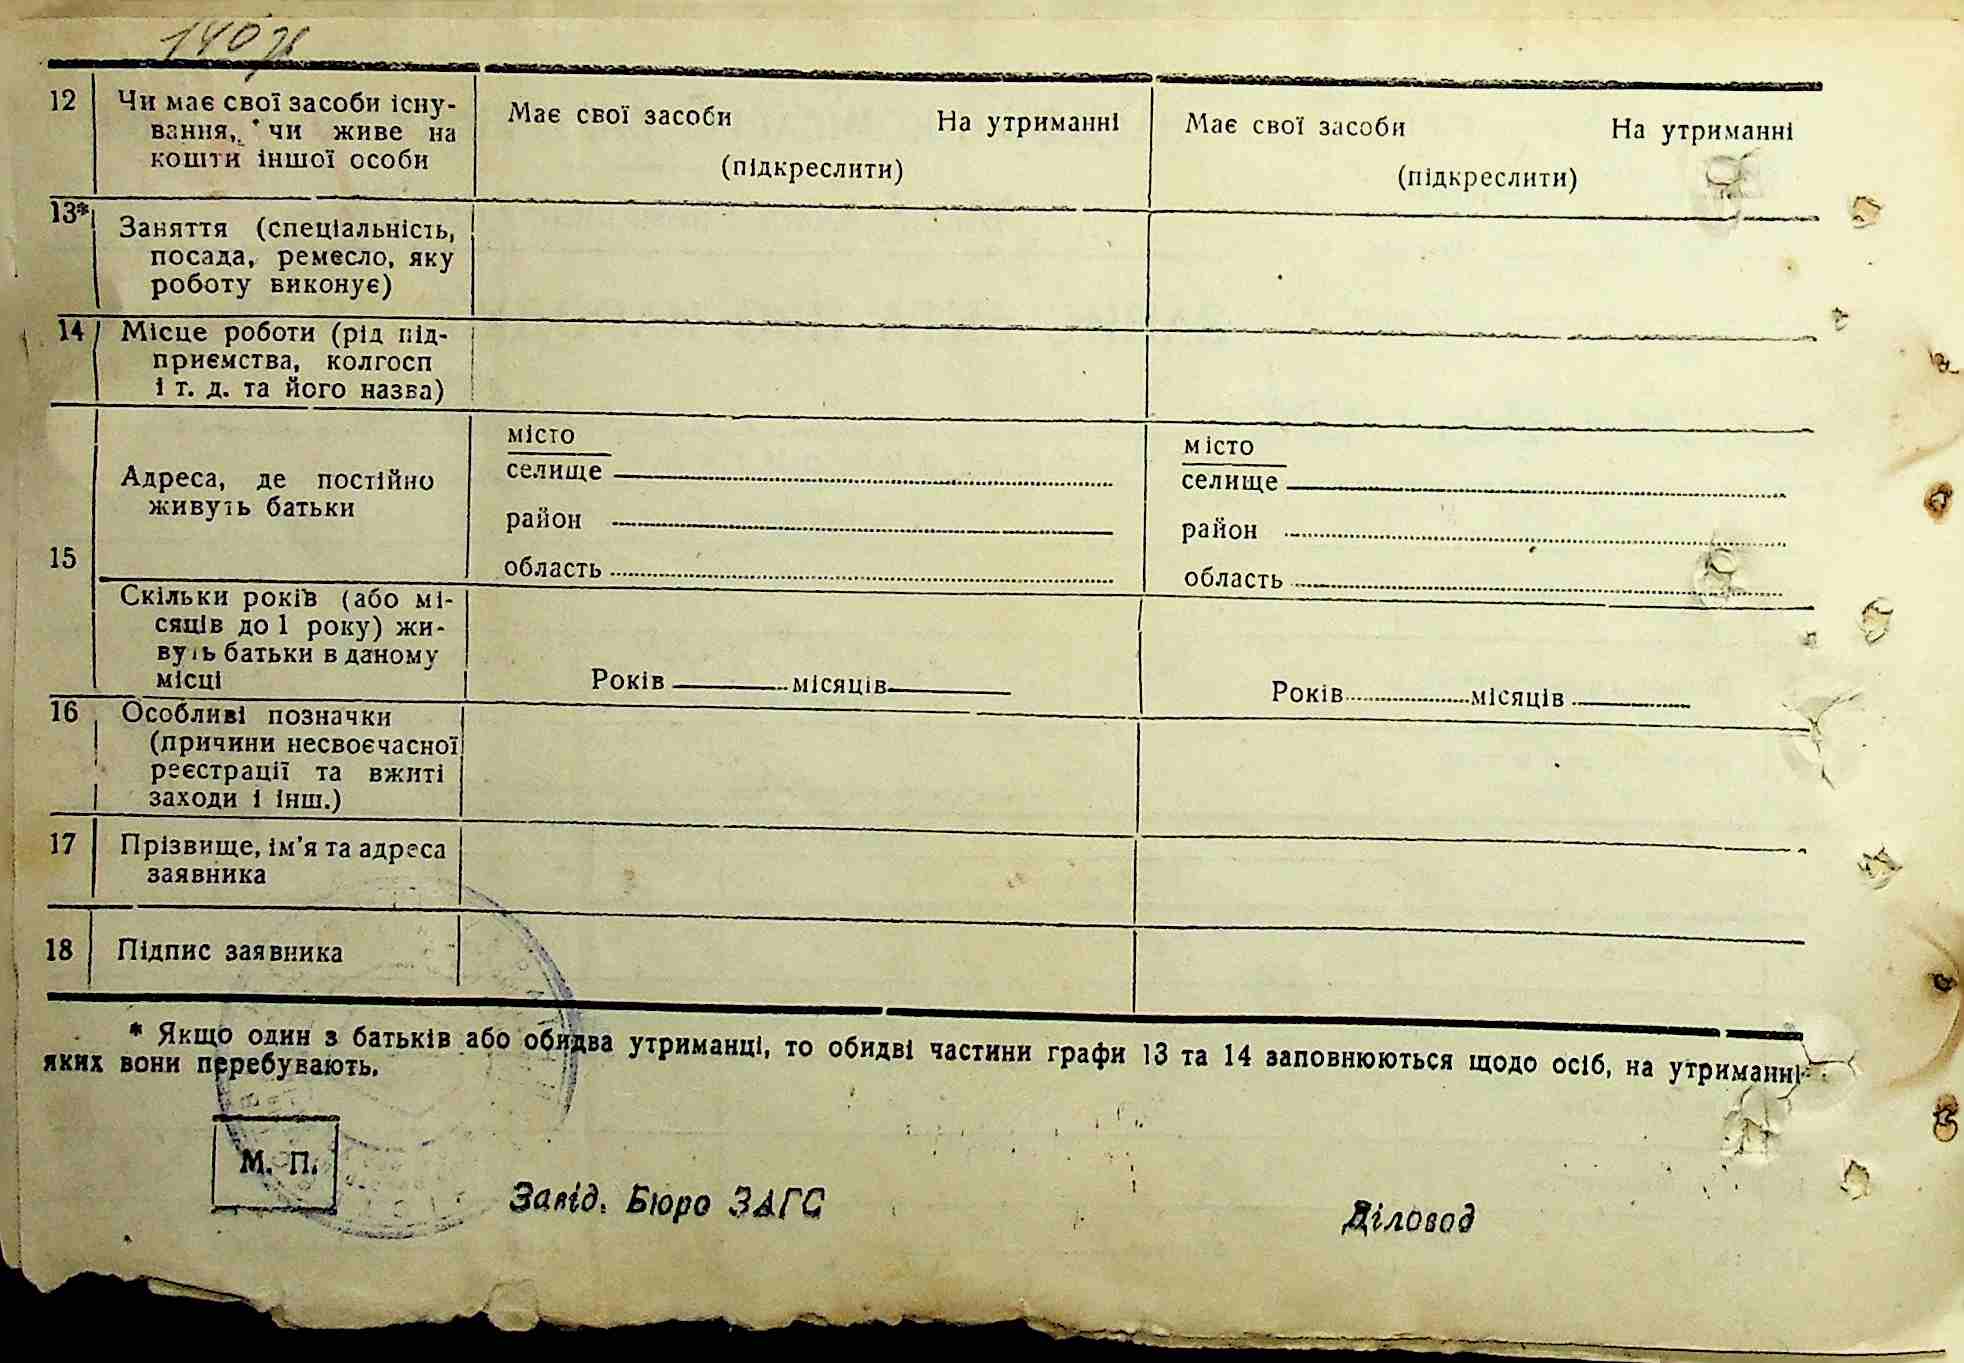 140
12 Чи має свої засоби існу- Має свої засоби На утриманні Має свої засоби На утриманні
вання, чи живе на
кошти іншої особи (підкреслити) (підкреслити)
13* Заняття (спеціальність,
посада, ремесло, яку
роботу виконує)
14 Місце роботи (рід під-
приємства, колгосп
і т. д. та його назва)
15 Адреса, де постійно
живуть батьки
місто
селище
район
область
місто
селище
район
область
Скільки років (або мі-
сяців до 1 року) жи-
вуть батьки в даному
місці
Років місяців
Років місяців
16 Особливі позначки
(причини несвоєчасної
реєстрації та вжиті
заходи і інш.)
17 Прізвище, ім’я та адреса
заявника
18 Підпис заявника
* Якщо один з батьків або обидва утриманці, то обидві частини графи 13 та 14 заповнюються щодо осіб, на утриманні
яких вони перебувають.
М. П.
Завід. Бюро ЗАГС Діловод